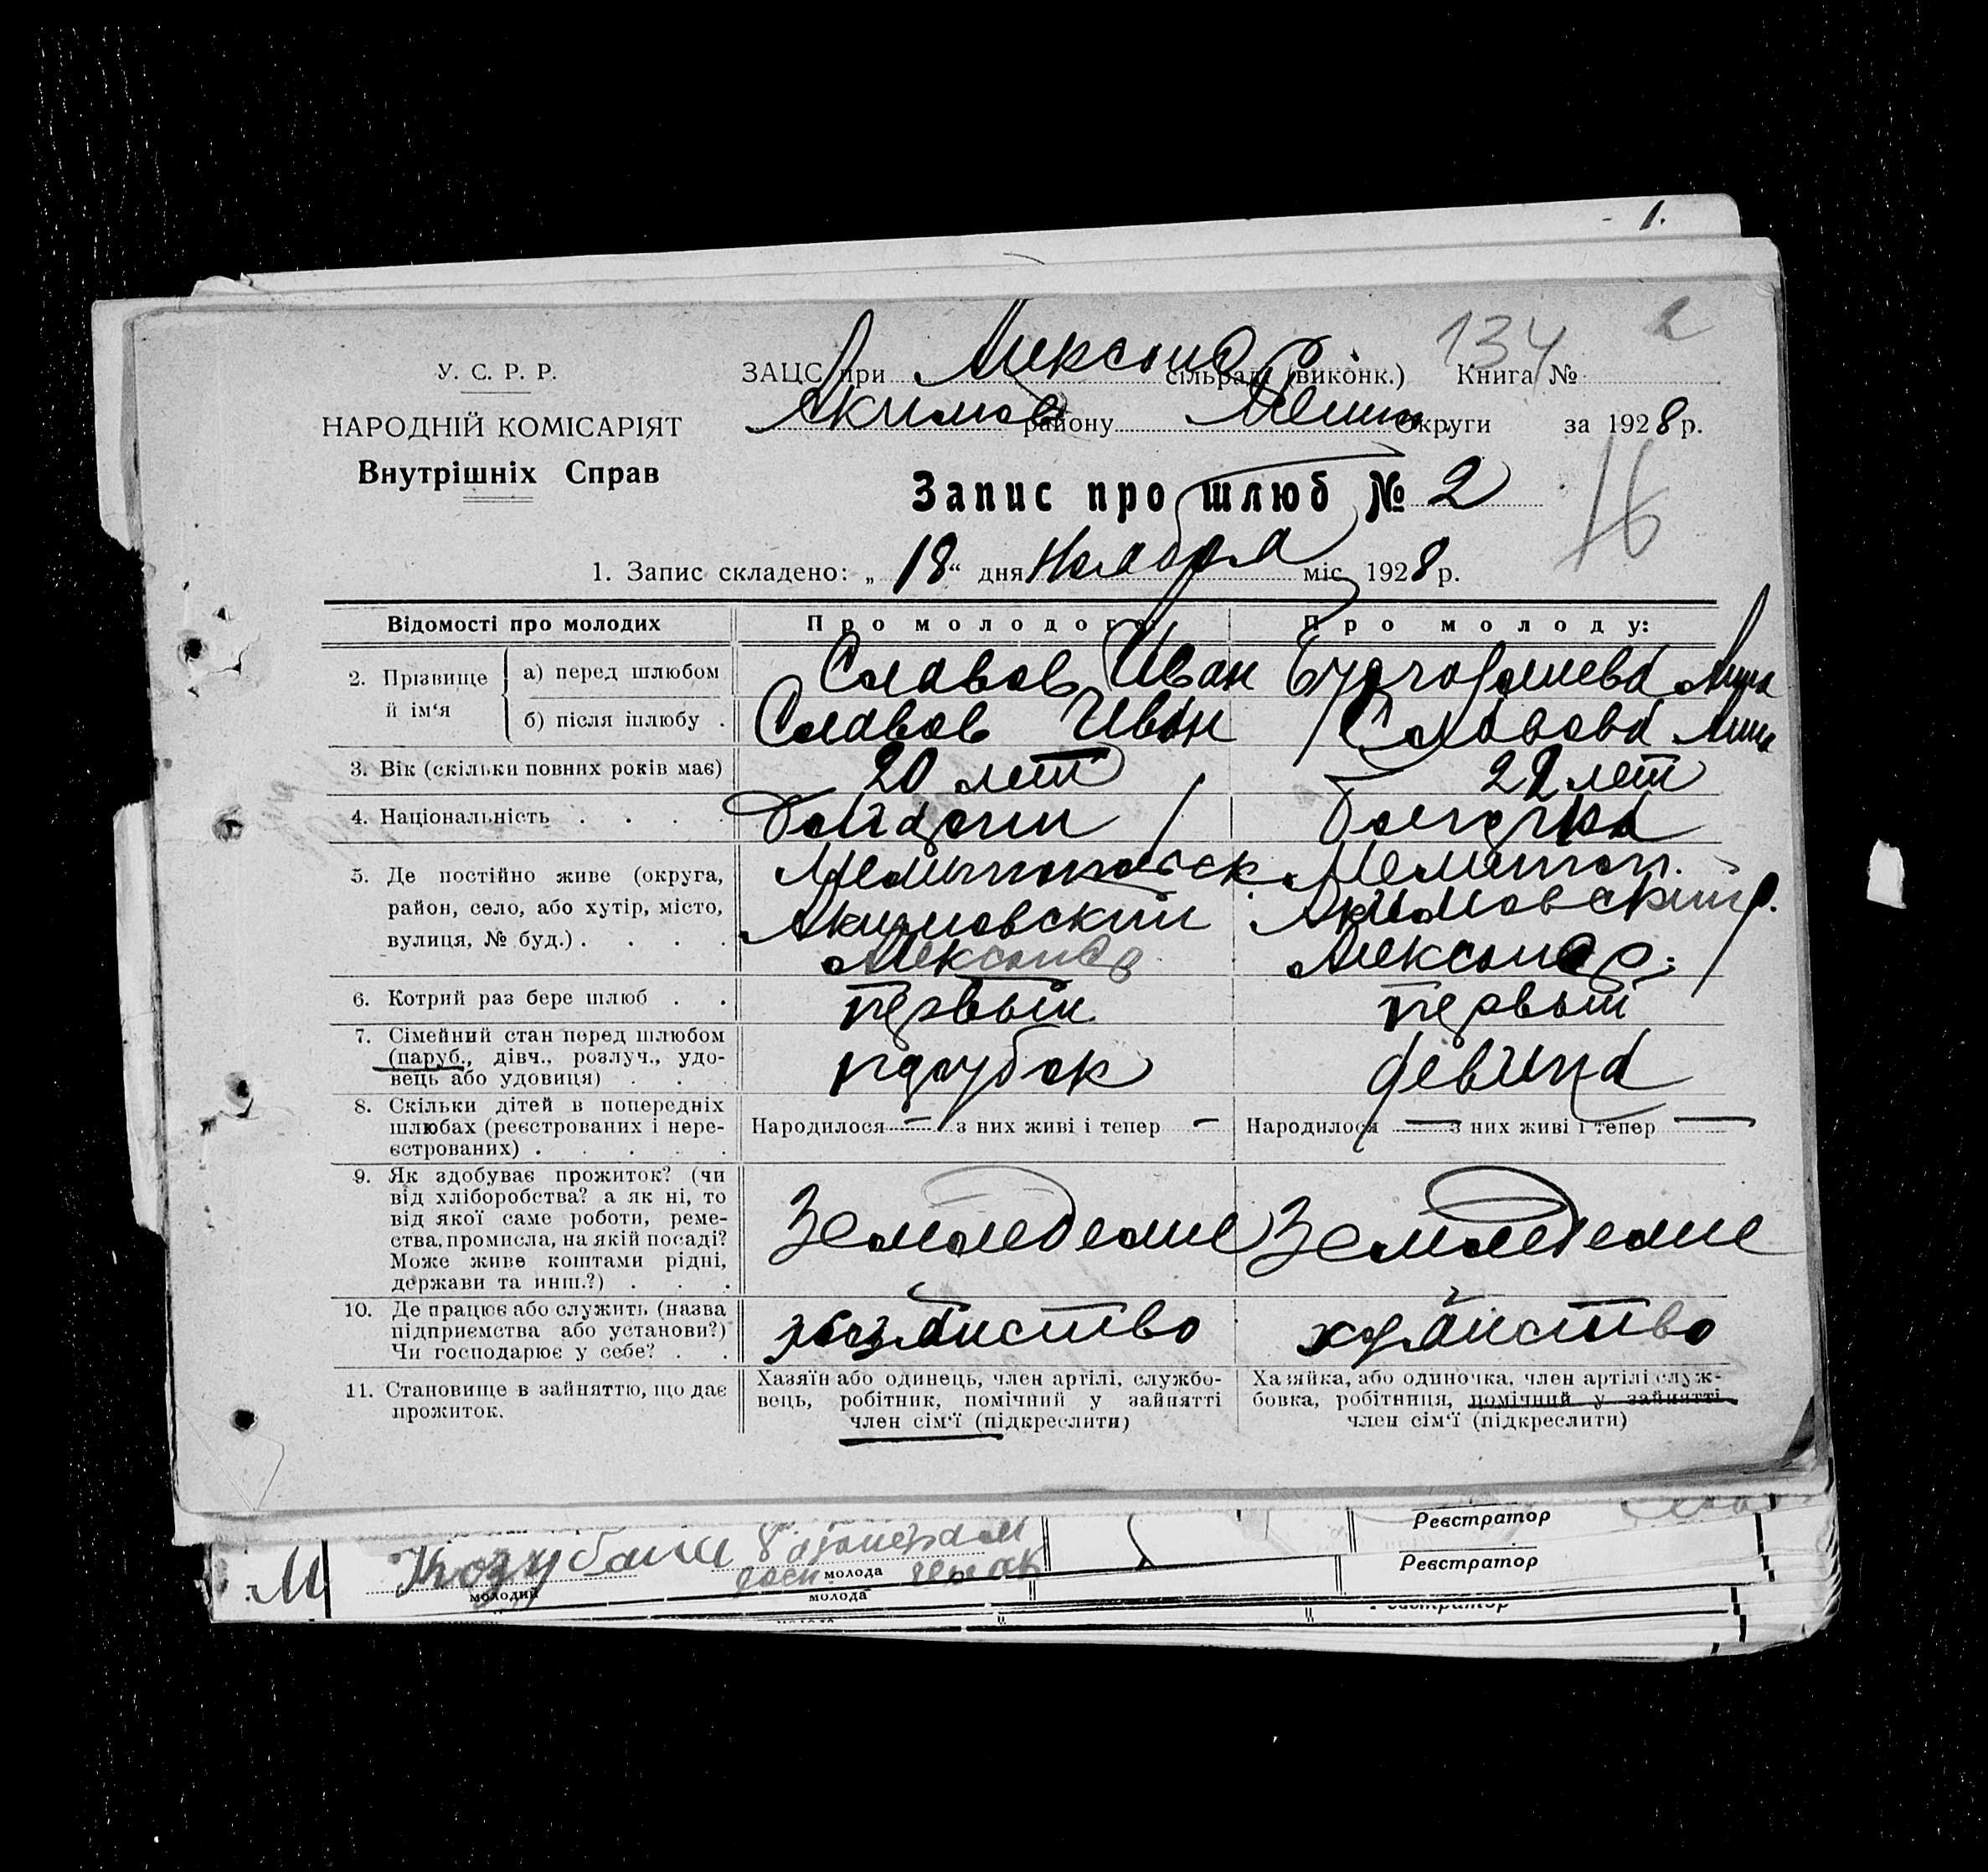 1.
134 2
У. С. Р. Р. ЗАЦС при сільраді (виконк.) Книга №
НАРОДНІЙ КОМІСАРІЯТ Акимов району Мелит. Округи за 1928 р.
Внутрішніх Справ
Запис про шлюб № 2
16
1. Запис складено: „18“ дня Ноября міс. 1928 р.
Відомості про молодих Про молодого: Про молоду:
2. Прізвище й ім‘я
а) перед шлюбом Славов Иван
б) після шлюбу . Славов Иван Славова
3. Вік (скільки повних років має) 20 лет 22 лет
4. Національність . . . . болгарин болгарка
5. Де постійно живе (округа, Мелитопольск Мелитоп.
район, село, або хутір, місто, Акимовский Акимовский р.
вулиця, № буд.) . . . .
6. Котрий раз бере шлюб . . первый первый
7. Сімейний стан перед шлюбом
(паруб., дівч., розлуч., удо- парубок девица
вець або удовиця) . . .
8. Скільки дітей в попередніх
шлюбах (реєстрованих і нере- Народилося — з них живі і тепер — Народилося — з них живі і тепер —
єстрованих) . . . . .
9. Як здобуває прожиток? (чи
від хліборобства? а як ні, то
від якої саме роботи, реме- Земледелие Земледелие
ства, промисла, на якій посаді?
Може живе коштами рідні,
держави та инш.?) . . .
10. Де працює або служить (назва
підприємства або установи?) хозяйство
Чи господарює у себе? . .
11. Становище в зайняттю, що дає Хазяїн або одинець, член артілі, службо- Хазяйка, або одиночка, член артілі служ-
прожиток. вець, робітник, помічний у зайнятті бовка, робітниця, помічний у зайнятті
член сім‘ї (підкреслити) член сім‘ї (підкреслити)
Реєстратор
молодий молода Реєстратор
молода
Реєстратор